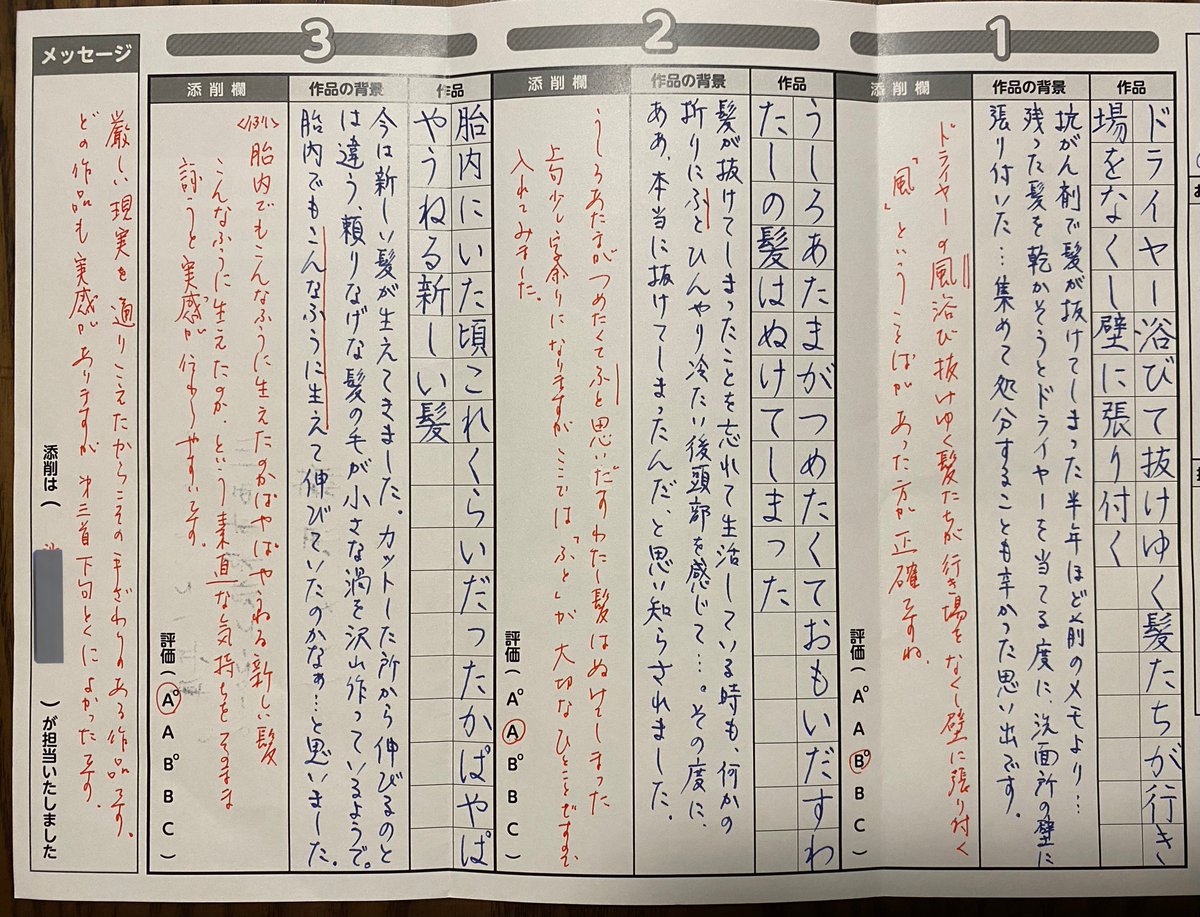 1
作品
ドライヤー浴びて抜けゆく髪たちが行き
場をなくし壁に張り付く
作品の背景
抗がん剤で髪が抜けてしまった半年ほど前のメモより…
残った髪を乾かそうとドライヤーを当てる度に、洗面所の壁に
張り付いた…集めて処分することも辛かった思い出です。
添削欄
ドライヤーの風浴び抜けゆく髪たちが行き場をなくし壁に張り付く
「風」ということばがあった方が正確ですね。
評価(A° A B° B C )
2
作品
うしろあたまがつめたくておもいだすわ
たしの髪はぬけてしまった
作品の背景
髪が抜けてしまったことを忘れて生活している時も、何かの
折りにふとひんやり冷たい後頭部を感じて…。その度に、
ああ、本当に抜けてしまったんだ、と思い知らされました。
添削欄
うしろあたまがつめたくてふと思いだすわたし髪はぬけてしまった
上句少し字余りになりますがここでは「ふと」が大切なひとことですので
入れてみました。
評価(A° A B° B C )
3
作品
胎内にいた頃これくらいだったかぱやぱ
やうねる新しい髪
作品の背景
今は新しい髪が生えてきました。カットした所から伸びるのと
は違う、頼りなげな髪の毛が小さな渦を沢山作っているようで。
胎内でもこんなふうに生えて伸びていたのかなぁ…と思いました。
添削欄
胎内でもこんなふうに生えたのかぱやぱやうねる新しい髪
こんなふうに生えてたのか、という素直な気持をそのまま
詠うと実感が伝わりやすいです。
評価(A° A B° B C )
メッセージ
厳しい現実を通りこえたからこその手ざわりのある作品です。
どの作品も実感がありますが、第三首下句とくによかったです。
添削は( )が担当いたしました